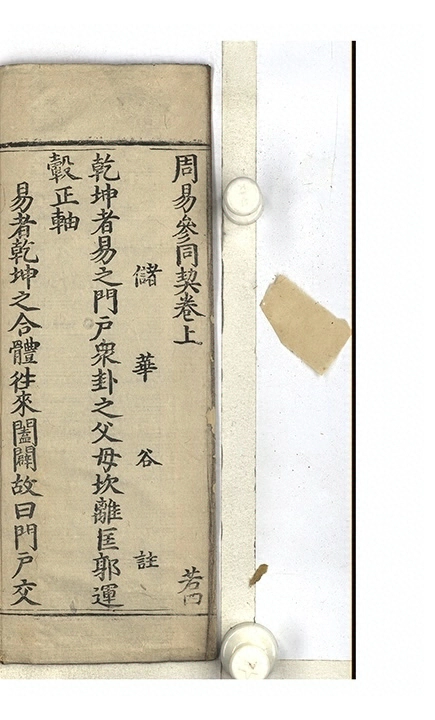 周易參同契卷上
若四
儲華谷註
乾坤者易之門戶衆卦之父母坎離匡郭運
轂正軸
易者乾坤之合體往來闔闢故曰門戶交